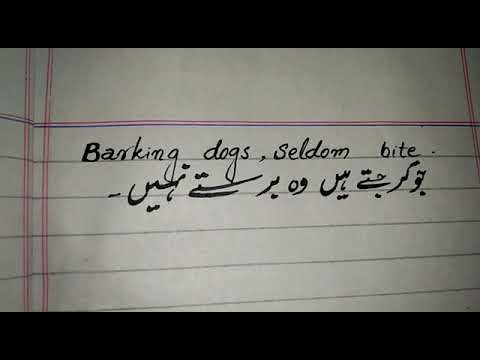 Barking dogs, Seldom bite.
جو گرجتے ہیں وہ برستے نہیں۔